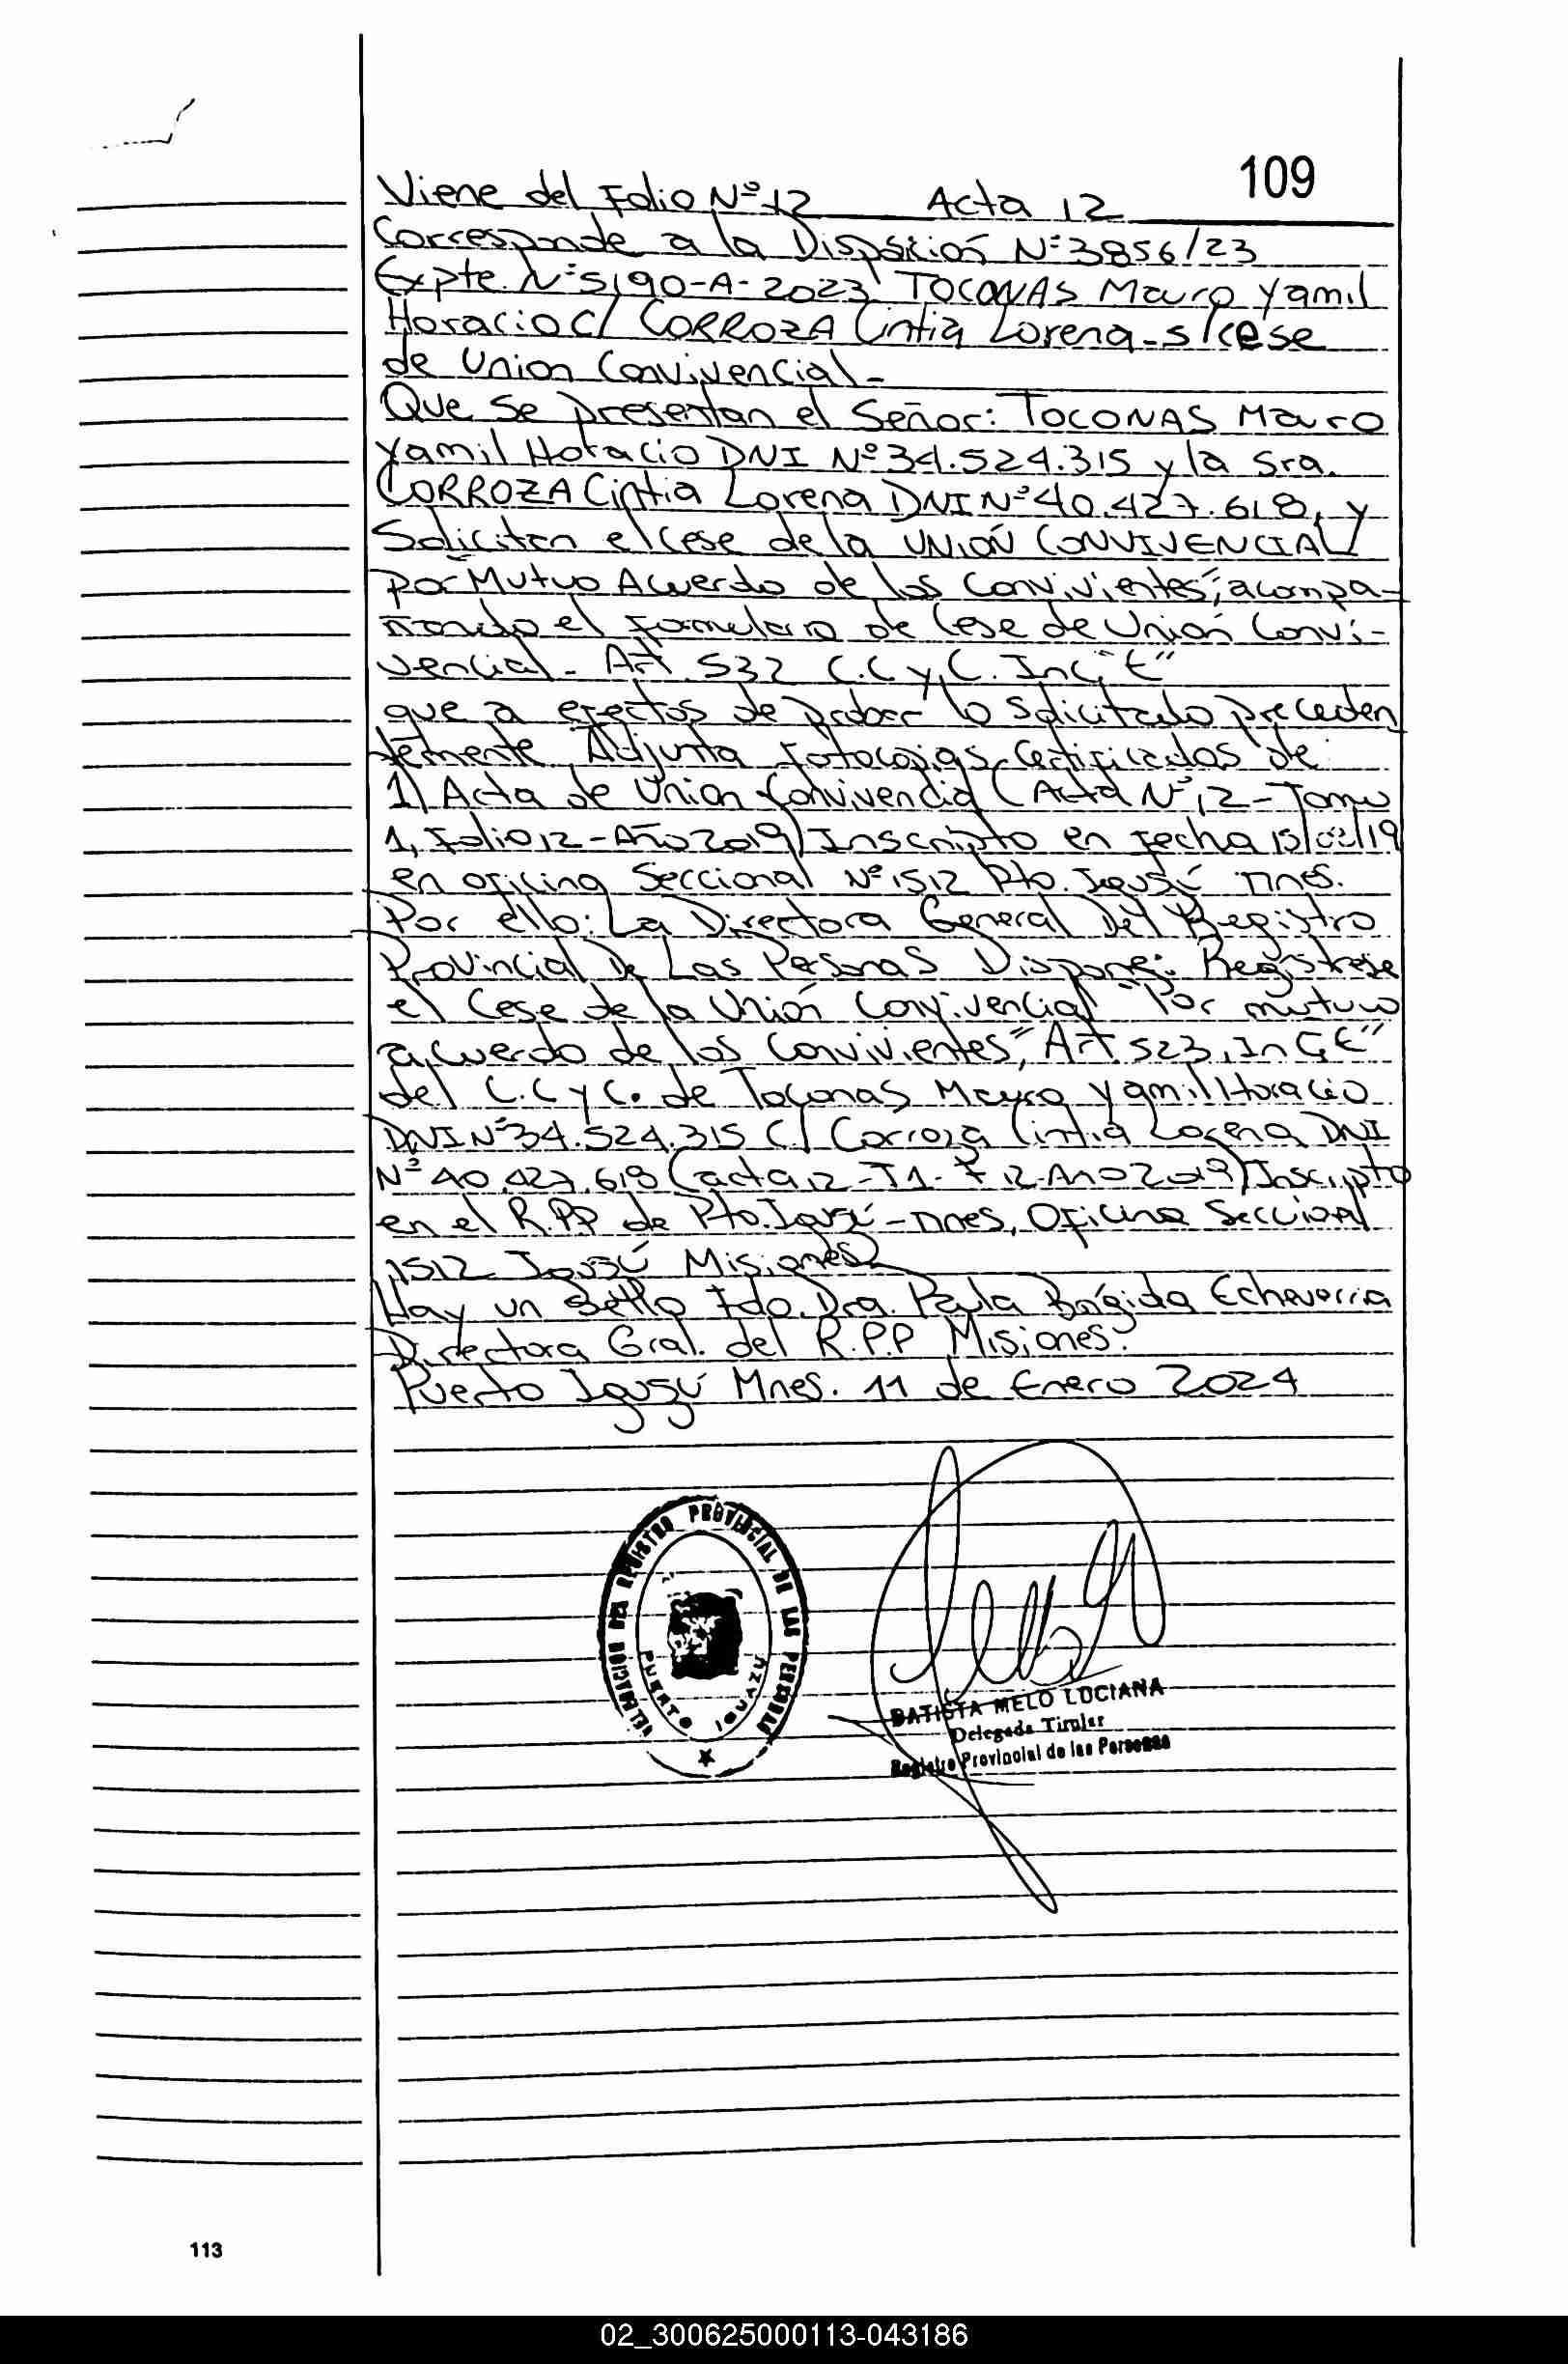 109
Viene del Folio Nº 12 Acta 12
Corresponde a la Disposición Nº 3856/23
Expte. Nº 5190-A-2023 TOCONAS Mauro Yamil
Horacio C/ CORROZA Cintia Lorena - s/cese
de Union Convivencial -
Que se presentan el Señor: TOCONAS Mauro
Yamil Horacio DNI Nº 34.524.315 y la Sra.
CORROZA Cintia Lorena DNI Nº 40.427.618, y
Solicitan el Cese de la UNIÓN CONVIVENCIAL
por Mutuo Acuerdo de los Convivientes", acompa-
ñando el formulario de Cese de Unión Convi-
vencial - Art. 532 C.C y C. Inc "E"
que a efectos de probar lo solicitado preceden
temente Adjunta fotocopias Certificados de
1) Acta de Union Convivencial (Acta Nº 12 - Tomo
1, Folio 12 - Año 2019) Inscripto en fecha /19
en oficina Seccional Nº 1512 Pto. Iguazú Mnes.
Por ello: La Directora General Del Registro
Provincial De Las Personas Dispone: Regístrese
el Cese de la Unión Convivencial "Por mutuo
acuerdo de los Convivientes", Art. 523, Inc "E"
del C.C y C. de Toconas Mauro Yamil Horacio
DNI Nº 34.524.315 C/ Corroza Cintia Lorena DNI
Nº 40.427.618 (acta 12 - T1 - F 12 - Año 2019) Inscripto
en el R.P.P de Pto. Iguazú - Mnes, Oficina Seccional
1512 Iguazú Misiones
Hay un Sello Fdo. Dra. Paula Brígida Echeverria
Directora Gral. del R.P.P Misiones.
Puerto Iguazú Mnes. 11 de Enero 2024
DELEGACION DEL REGISTRO PROVINCIAL DE LAS PERSONAS
PUERTO IGUAZU
BATISTA MELO LUCIANA
Delegada Titular
Registro Provincial de las Personas
113
02_300625000113-043186